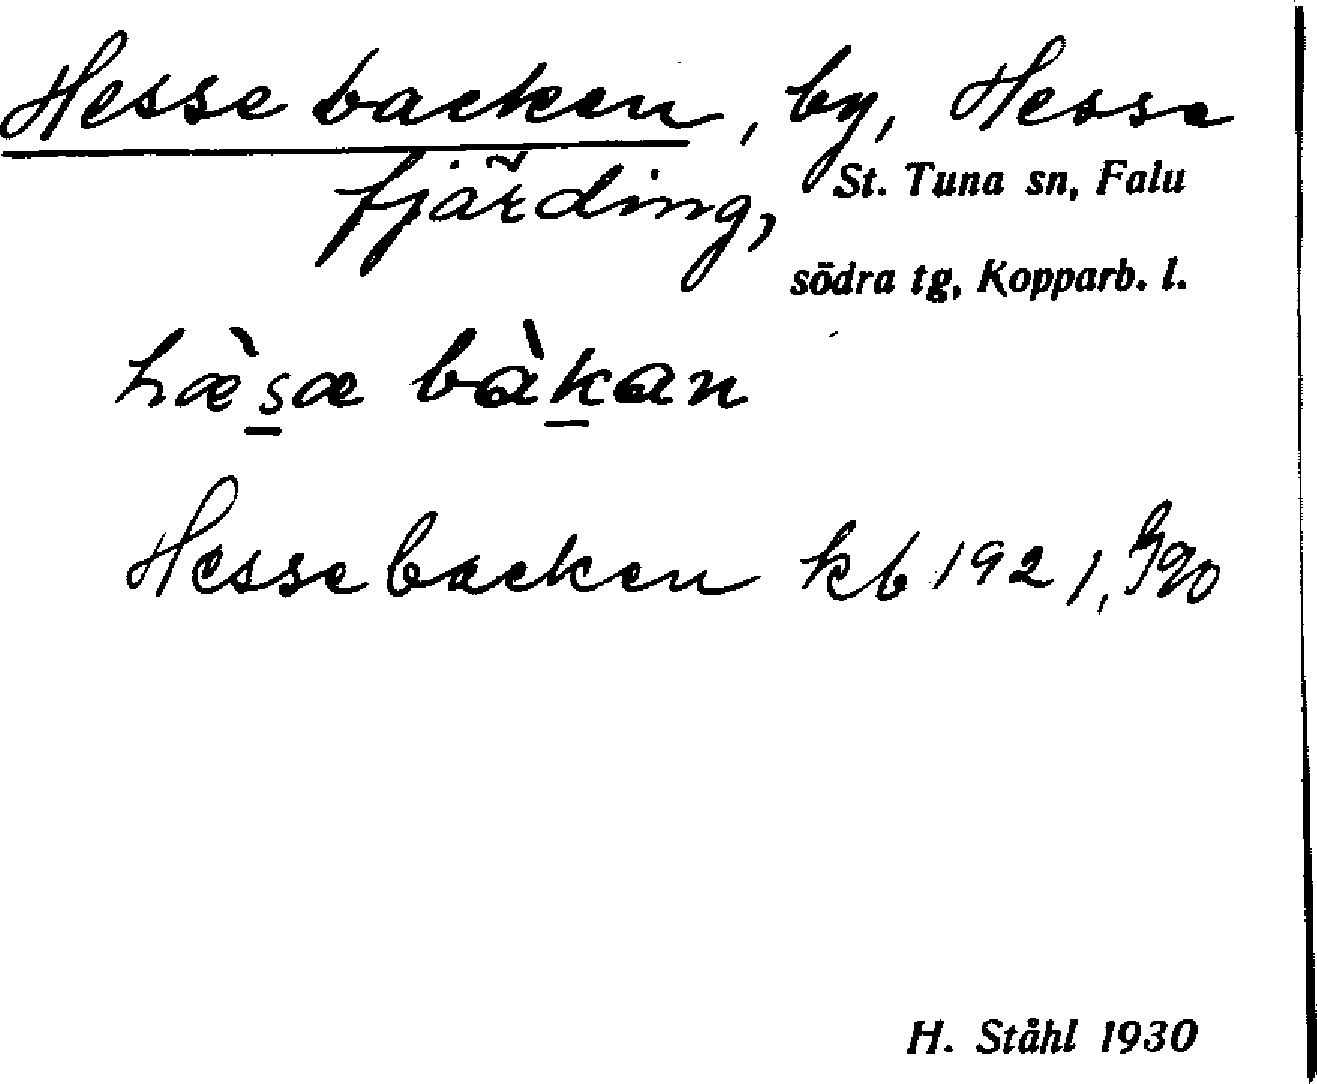 Hessebacken, by, Hesse
fjärding, St. Tuna sn, Falu
södra tg, Kopparb. l.
hæ̀s̠æ bàk̠an
Hessebacken kb 1921,
H. Ståhl 1930